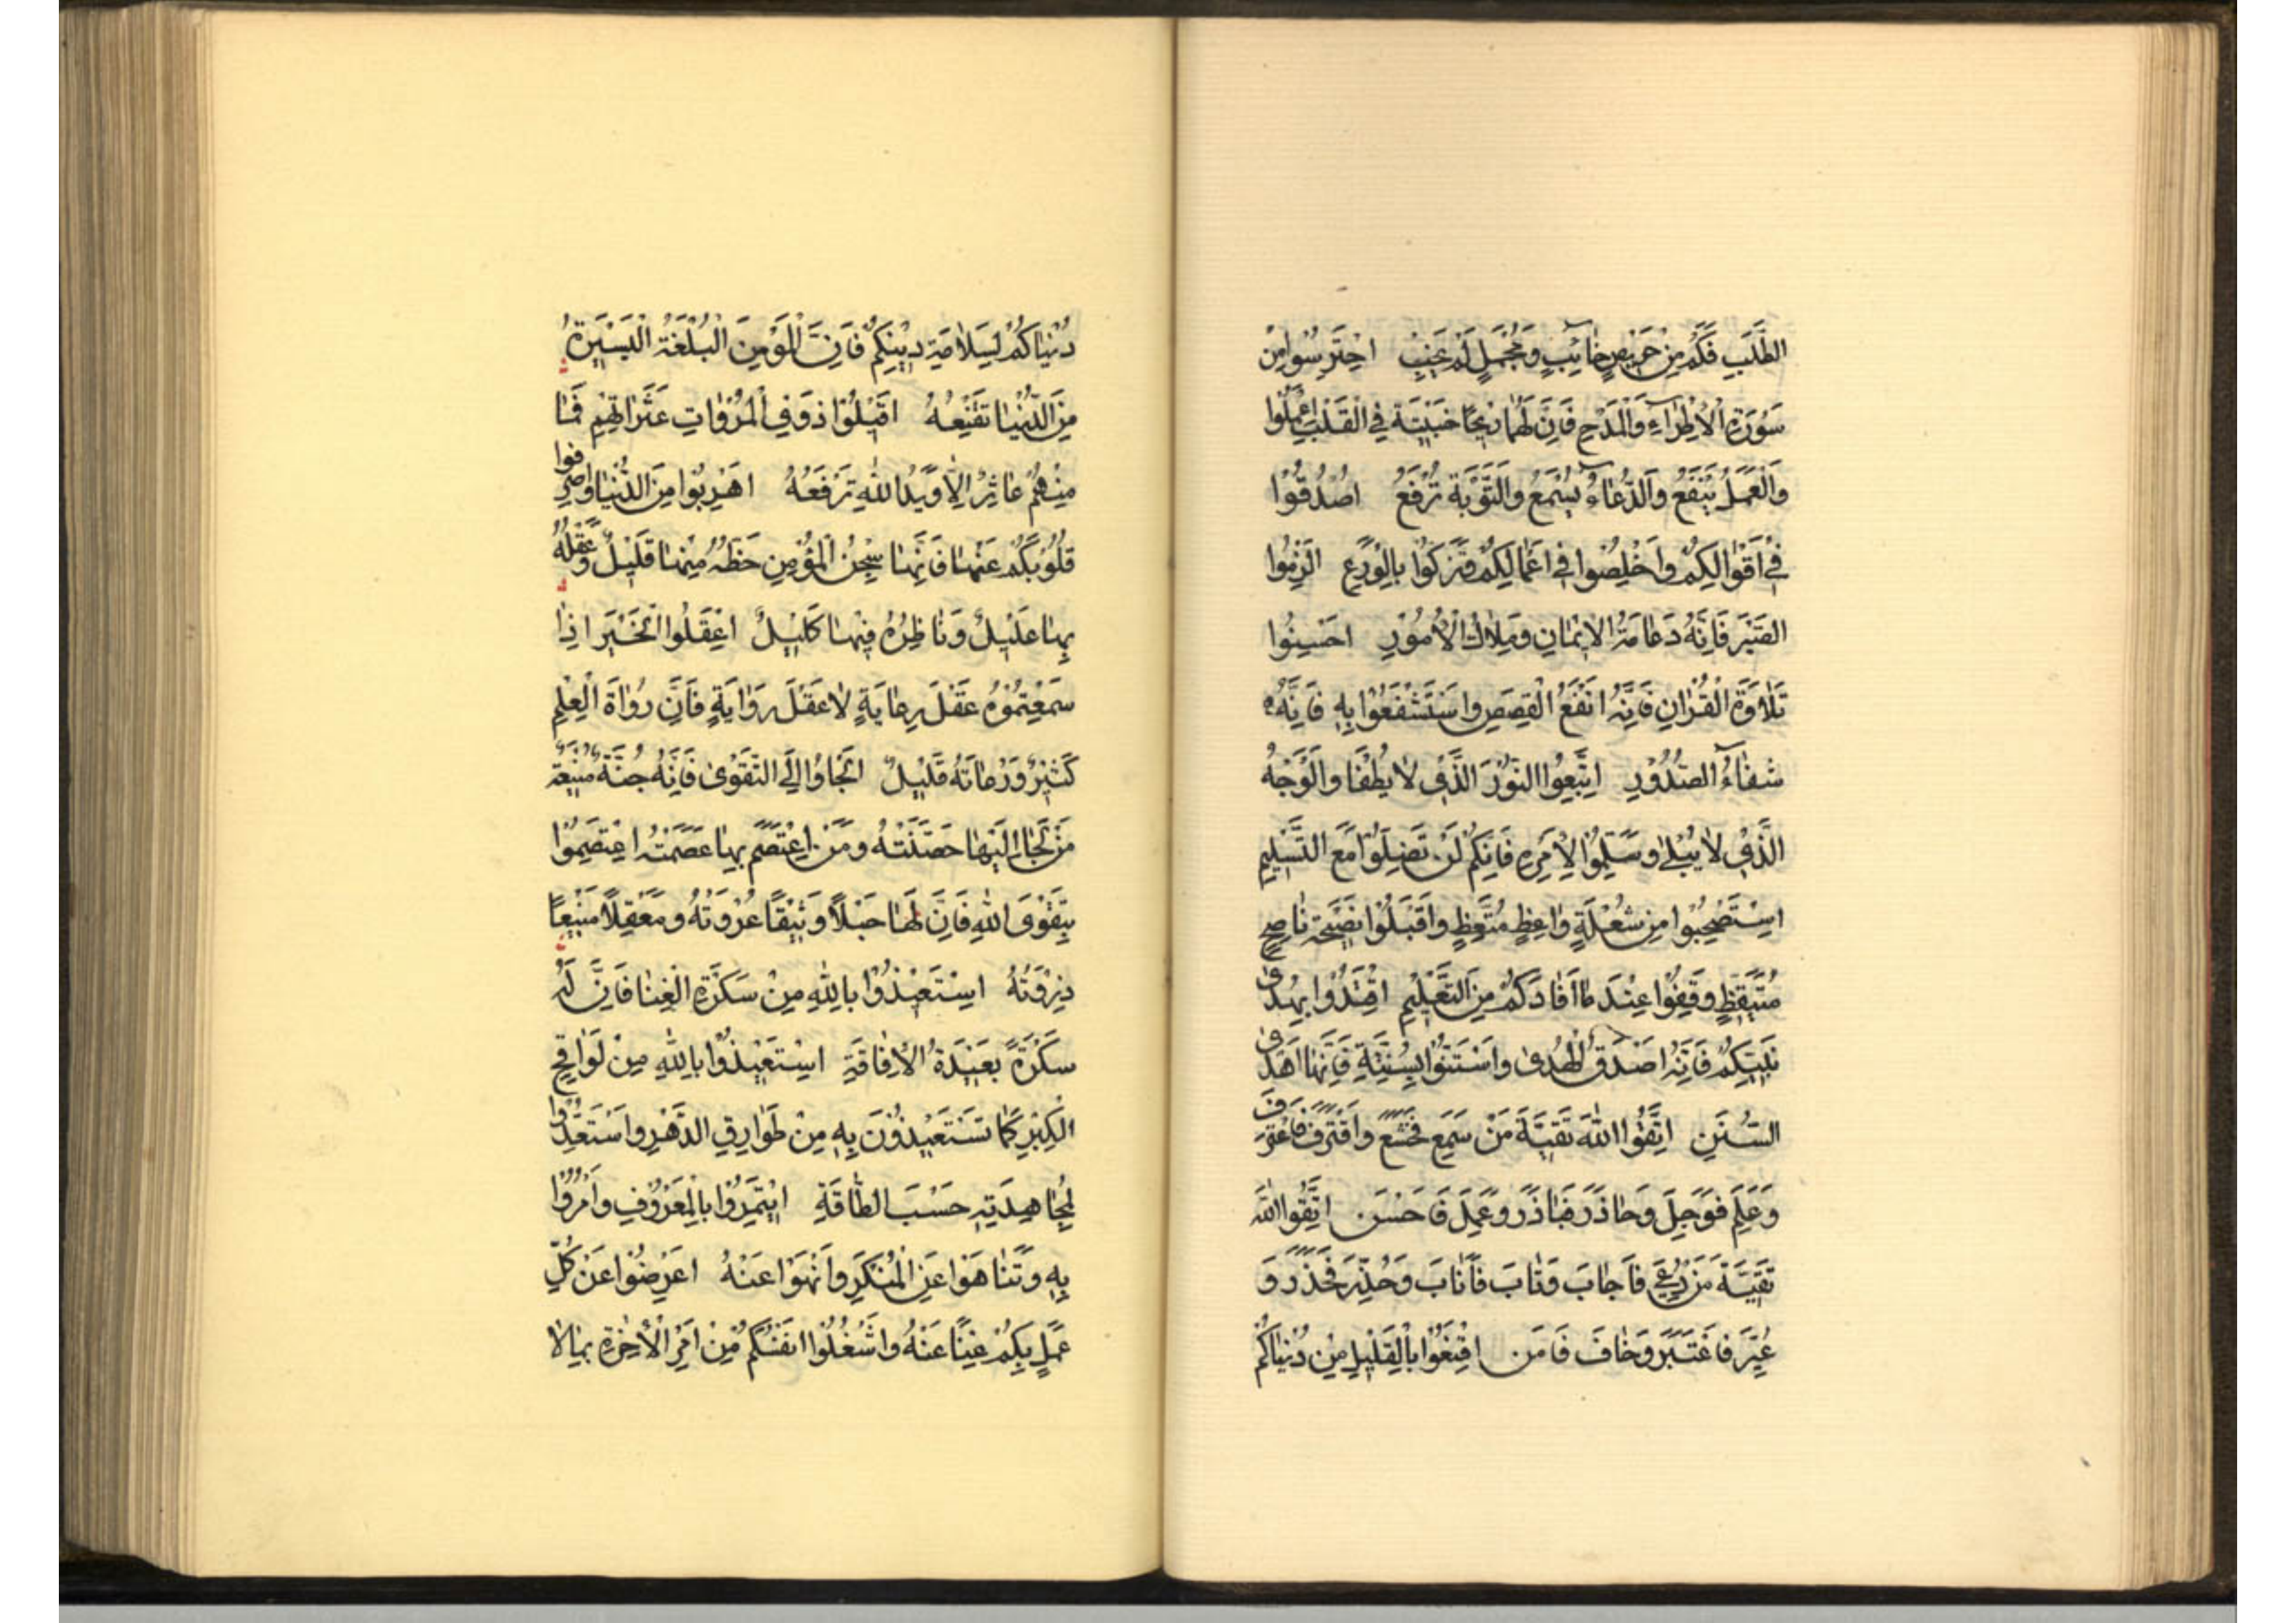 الطَّلَبِ فَكَمْ مِنْ حَرِيصٍ خَائِبٍ وَمُجْمِلٍ لَمْ يَخِبْ احْتَرِسُوا مِنْ
سَوْرَةِ الْاِطْرَاءِ وَالْمَدْحِ فَاِنَّ لَهُمَا رِيحًا خَبِيثَةً فِي الْقَلْبِ اعْمَلُوا
وَالْعَمَلُ يَنْفَعُ وَالدُّعَاءُ يُسْمَعُ وَالتَّوْبَةُ تُرْفَعُ اصْدُقُوا
فِي اَقْوَالِكُمْ وَاَخْلِصُوا فِي اَعْمَالِكُمْ وَتَزَكَّوْا بِالْوَرَعِ الْزِمُوا
الصَّبْرَ فَاِنَّهُ دَعَامَةُ الْاِيمَانِ وَمِلَاكُ الْاُمُورِ احْسِنُوا
تِلَاوَةَ الْقُرْاٰنِ فَاِنَّهُ اَنْفَعُ الْقِصَصِ وَاسْتَشْفَعُوا بِهِ فَاِنَّهُ
شِفَاءُ الصُّدُورِ اتَّبِعُوا النُّورَ الَّذِي لَا يُطْفَا وَالْوَجْهُ
الَّذِي لَا يُبْلٰى وَسَلِّمُوا لِاَمْرِهِ فَاِنَّكُمْ لَنْ تَضِلُّوا مَعَ التَّسْلِيمِ
اسْتَصْبِحُوا مِنْ شُعْلَةِ وَاعِظٍ مُتَّعِظٍ وَاقْبَلُوا نَصِيحَةَ نَاصِحٍ
مُتَيَقِّظٍ وَقِفُوا عِنْدَ مَا اَفَادَكُمْ مِنَ التَّعْلِيمِ اقْتَدُوا بِهُدٰى
نَبِيِّكُمْ فَاِنَّهُ اَصْدَقُ الْهُدٰى وَاسْتَنُّوا بِسُنَّتِهِ فَاِنَّهَا اَهْدٰى
السُّنَنِ اتَّقُوا اللّٰهَ تَقِيَّةَ مَنْ سَمِعَ فَخَشَعَ وَاقْتَرَفَ فَاعْتَرَفَ
وَعَلِمَ فَوَجِلَ وَحَاذَرَ فَبَادَرَ وَعَمِلَ فَاَحْسَنَ اتَّقُوا اللّٰهَ
تَقِيَّةَ مَنْ دُعِيَ فَاَجَابَ وَتَابَ فَاَنَابَ وَحُذِّرَ فَحَذَرَ وَ
عُبِّرَ فَاعْتَبَرَ وَخَافَ فَاَمِنَ اقْنَعُوا بِالْقَلِيلِ مِنْ دُنْيَاكُمْ
دُنْيَاكُمْ لِسَلَامَةِ دِينِكُمْ فَاِنَّ الْمُؤْمِنَ الْبُلْغَةُ الْيَسِيرَةُ
مِنَ الدُّنْيَا تُقْنِعُهُ اقِيلُوا ذَوِي الْمُرُوَّاتِ عَثَرَاتِهِمْ فَمَا
مِنْهُمْ عَاثِرٌ اِلَّا وَيَدُ اللّٰهِ تَرْفَعُهُ اهْرِبُوا مِنَ الدُّنْيَا وَاصْرِفُوا
قُلُوبَكُمْ عَنْهَا فَاِنَّهَا سِجْنُ الْمُؤْمِنِ حَظُّهُ مِنْهَا قَلِيلٌ وَعَقْلُهُ
بِهَا عَلِيلٌ وَنَاظِرُهُ فِيهَا كَلِيلٌ اعْقِلُوا الْخَبَرَ اِذَا
سَمِعْتُمُوهُ عَقْلَ رِعَايَةٍ لَا عَقْلَ رِوَايَةٍ فَاِنَّ رُوَاةَ الْعِلْمِ
كَثِيرٌ وَرُعَاتَهُ قَلِيلٌ الْجَاوُا اِلَى التَّقْوٰى فَاِنَّهُ جُنَّةٌ مَنِيعَةٌ
مَنْ لَجَا اِلَيْهَا حَصَّنَتْهُ وَمَنِ اعْتَصَمَ بِهَا عَصَمَتْهُ اعْتَصِمُوا
بِتَقْوَى اللّٰهِ فَاِنَّ لَهَا حَبْلًا وَثِيقًا عُرْوَتُهُ وَمَعْقِلًا مَنِيعًا
ذِرْوَتُهُ اسْتَعِيذُوا بِاللّٰهِ مِنْ سَكْرَةِ الْغِنَا فَاِنَّ لَهُ
سَكْرَةً بَعِيدَةَ الْاِفَاقَةِ اسْتَعِيذُوا بِاللّٰهِ مِنْ لَوَاقِحِ
الْكِبْرِ كَمَا تَسْتَعِيذُونَ بِهِ مِنْ طَوَارِقِ الدَّهْرِ وَاسْتَعِدُّوا
لِمُجَاهَدَتِهِ حَسَبَ الطَّاقَةِ ايْتَمِرُوا بِالْمَعْرُوفِ وَامُرُوا
بِهِ وَتَنَاهَوْا عَنِ الْمُنْكَرِ وَانْهَوْا عَنْهُ اعْرِضُوا عَنْ كُلِّ
عَمَلٍ بِكُمْ غِنًا عَنْهُ وَاشْغُلُوا انْفُسَكُمْ مِنْ اَمْرِ الْاٰخِرَةِ بِمَا لَا